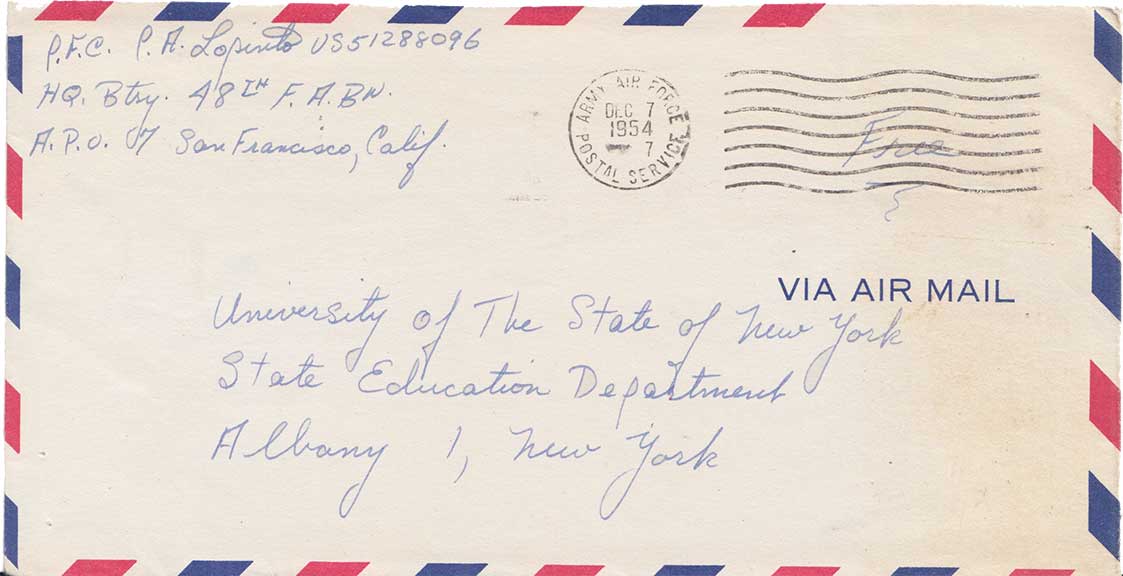 P.F.C. P.A. Lopinto US51288096
HQ. Btry. 48TH F.A.BN.
A.P.O. 7 San Francisco, Calif.
ARMY AIR FORCE
DEC 7
1954
7
POSTAL SERVICE
Free
VIA AIR MAIL
University of The State of New York
State Education Department
Albany 1, New York